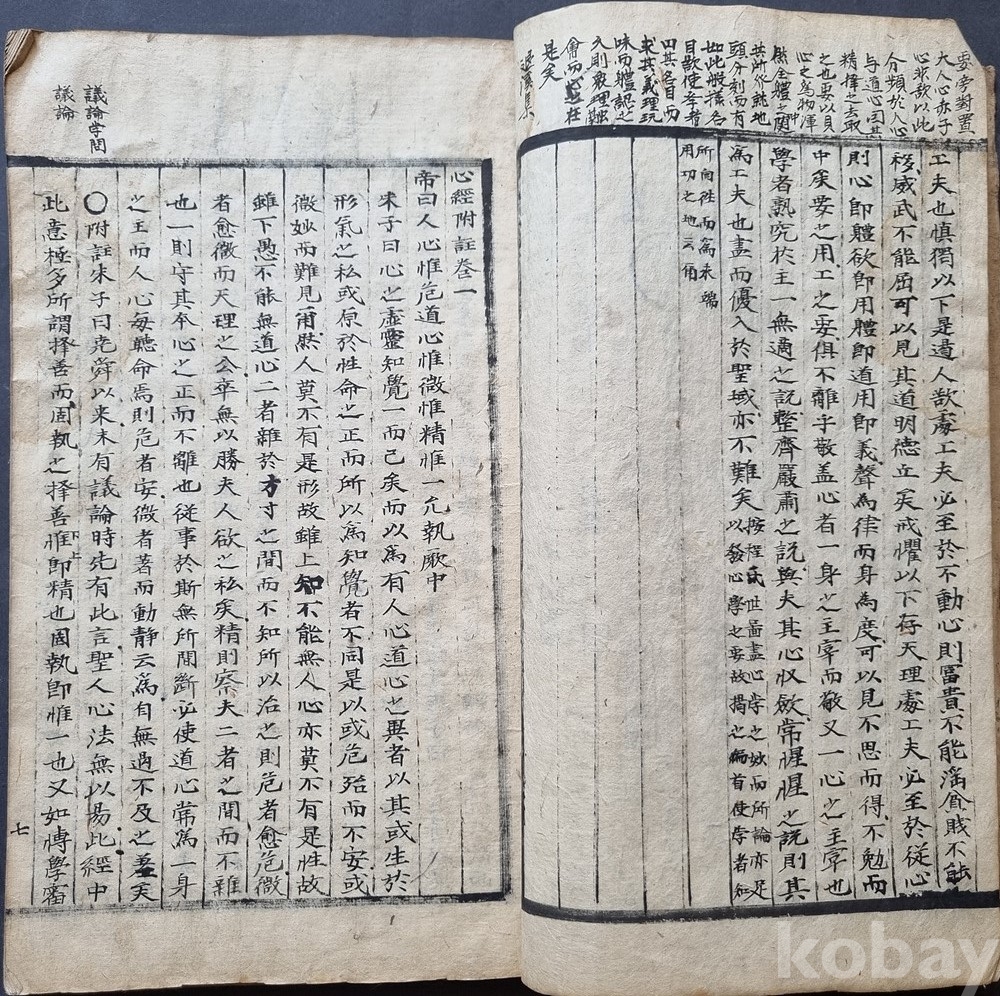 大人心赤子
心非欲以此
分類於人心
与道心因其
精擇之去取
之也要以見
心之爲物渾
然全體之中
其所從就地
頭分刻而有
如此般樣名
目欲使學者
因其名目而
求其義理玩
味而體認之
久則衆理融
會而心之在
是矣
工夫也愼獨以下是遏人欲處工夫必至於不動心則富貴不能淫貧賤不能
移威武不能屈可以見其道明德立矣戒懼以下存天理處工夫必至於從心
則心卽體欲卽用體卽道用卽義聲爲律而身爲度可以見不思而得不勉而
中矣要之用工之要俱不離乎敬盖心者一身之主宰而敬又一心之主宰也
學者熟究於主一無適之說整齊嚴肅之說與夫其心收斂常惺惺之說則其
爲工夫也盡而優入於聖域亦不難矣
按程氏此畵盡心學之妙而所論亦足
以發心學之要故揭之編首使學者知
所向徃而爲求端
用功之地云爾
議論学問
議論
心經附註卷一
帝曰人心惟危道心惟微惟精惟一允執厥中
朱子曰心之虛靈知覺一而已矣而以爲有人心道心之異者以其或生於
形氣之私或原於性命之正而所以爲知覺者不同是以或危殆而不安或
微妙而難見甭然人莫不有是形故雖上知不能無人心亦莫不有是性故
雖下愚不能無道心二者雜於方寸之間而不知所以治之則危者愈危微
者愈微而天理之公卒無以勝夫人欲之私矣精則察夫二者之間而不雜
也一則守其本心之正而不離也從事於斯無所間斷必使道心常爲一身
之主而人心每聽命焉則危者安微者著而動靜云爲自無過不及之差矣
○附註朱子曰堯舜以來未有議論時先有此言聖人心法無以易此經中
此意極多所謂擇善而固執之擇善惟卽精也固執卽惟一也又如博學審
七